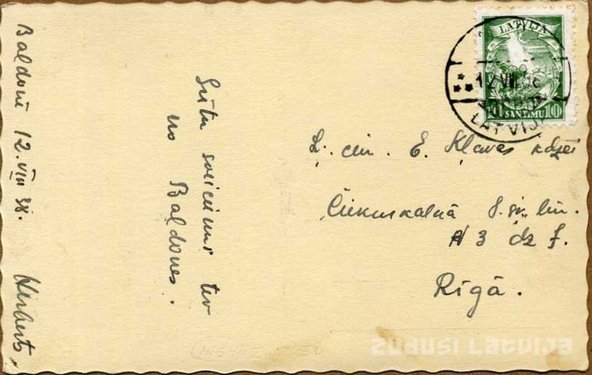 Baldonē 12. VIII 38.
Sūtu sveicienus tev
no Baldones.
Herberts.
LATVIJA
10 SANTIMU 10
LATVIJA
Ļ. cien. E. Kļaves kdzei
Čiekurkalnā 8. šķ. lin.
№ 3 dz 7.
Rīgā.
ZUDUSI LATVIJA